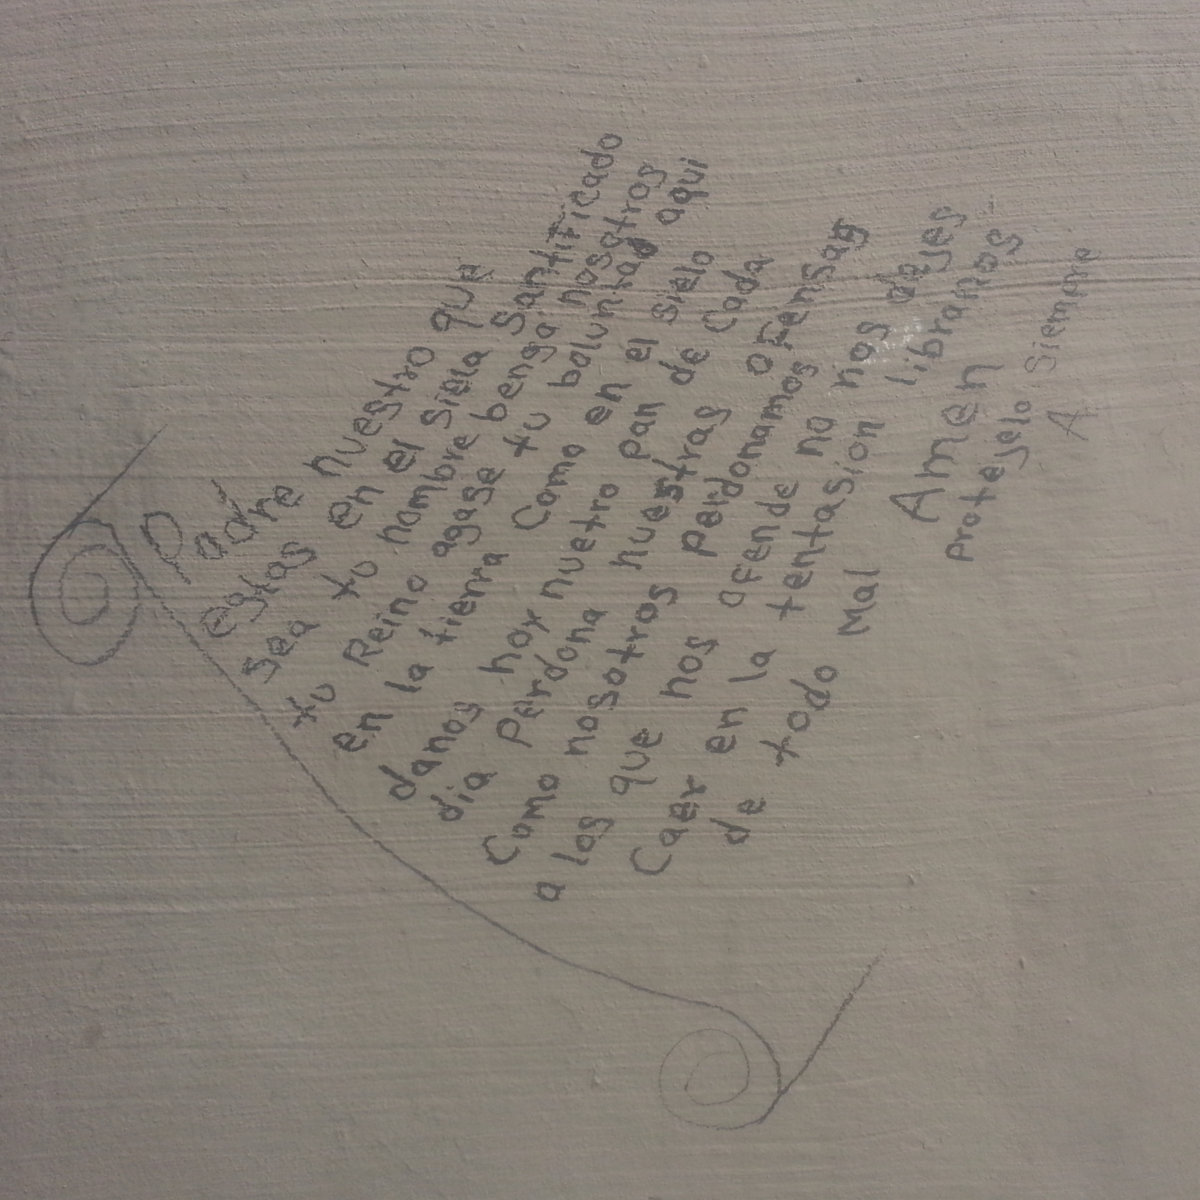 Padre nuestro que
estas en el siela Santificado
sea tu nombre benga nosotros
tu Reino agase tu boluntad aqui
en la tierra Como en el sielo
danos hoy nuetro pan de Cada
dia Perdona nuestras ofensas
Como nosotros perdonamos
a los que nos ofende no nos dejes
Caer en la tentasion libranos
de todo Mal Amen
protejelo Siempre
A